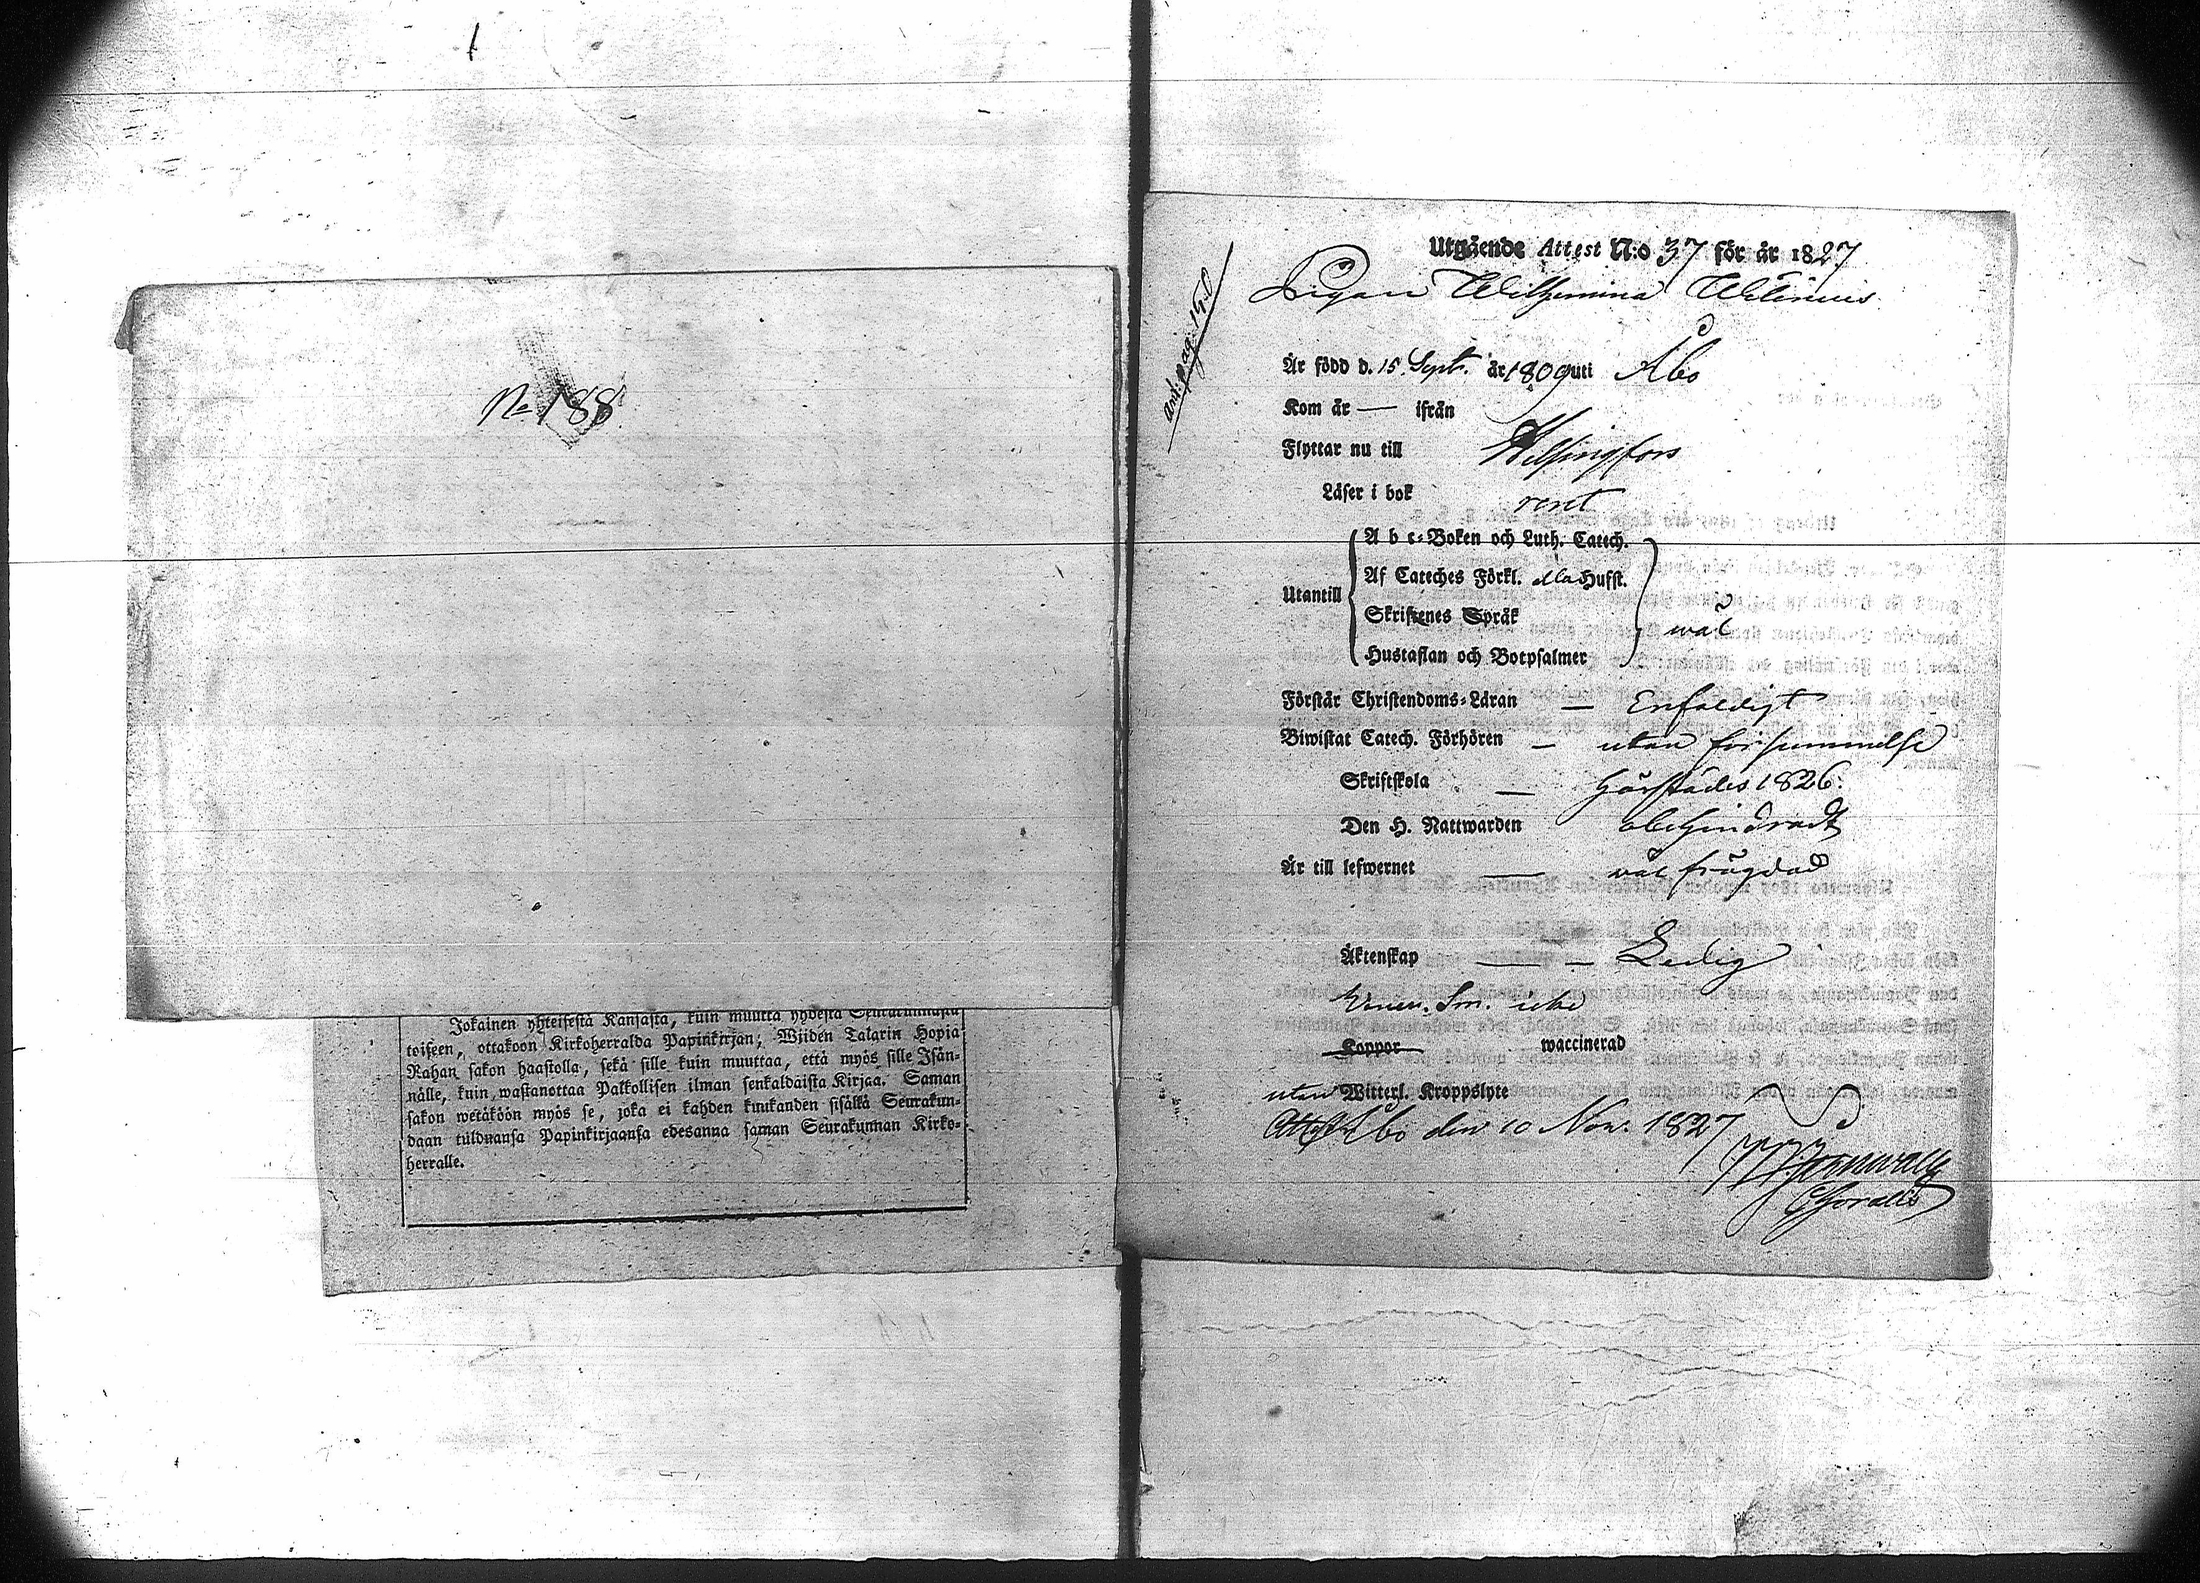 No 188.
Jokainen yhteisestä Kansasta, kuin muutta yhdestä Seurakunnasta
toiseen, ottakoon Kirkoherralda Papinkirjan; Wiiden Talarin Hopia
Rahan sakon haastolla, sekä sille kuin muuttaa, että myös sille Isän-
nälle, kuin wastanottaa Palkollisen ilman senkaldaista Kirjaa. Saman
sakon wetäköön myös se, joka ei kahden kuukanden sisälkä Seurakun-
daan tulduansa Papinkirjaansa edesanna saman Seurakunnan Kirko-
herralle.
ant. pag. 150
Utgående Attest N:o 37 för år 1827
Pigan Wilhemina Welenius
Är född d. 15 Sept. år 1809 uti Åbo
Kom år — ifrån
Flyttar nu till Helsingfors
Läser i bok rent
Utantill
A b c-Boken och Luth. Catech.
Af Cateches Förkl. alla Hufst.
Skriftenes Språk
Hustaflan och Botpsalmer
wäl
Förstår Christendoms-Läran — Enfaldigt
Biwistat Catech. Förhören — utan försummelse
Skriftskola — härstädes 1826.
Den H. Nattwarden obehindradt
Är till lefwernet — wäl frägdad
Äktenskap — — Ledig
Vener. Sm. icke
Koppor waccinerad
utan Witterl. Kroppslyte
Attest. Åbo den 10 Nov. 1827